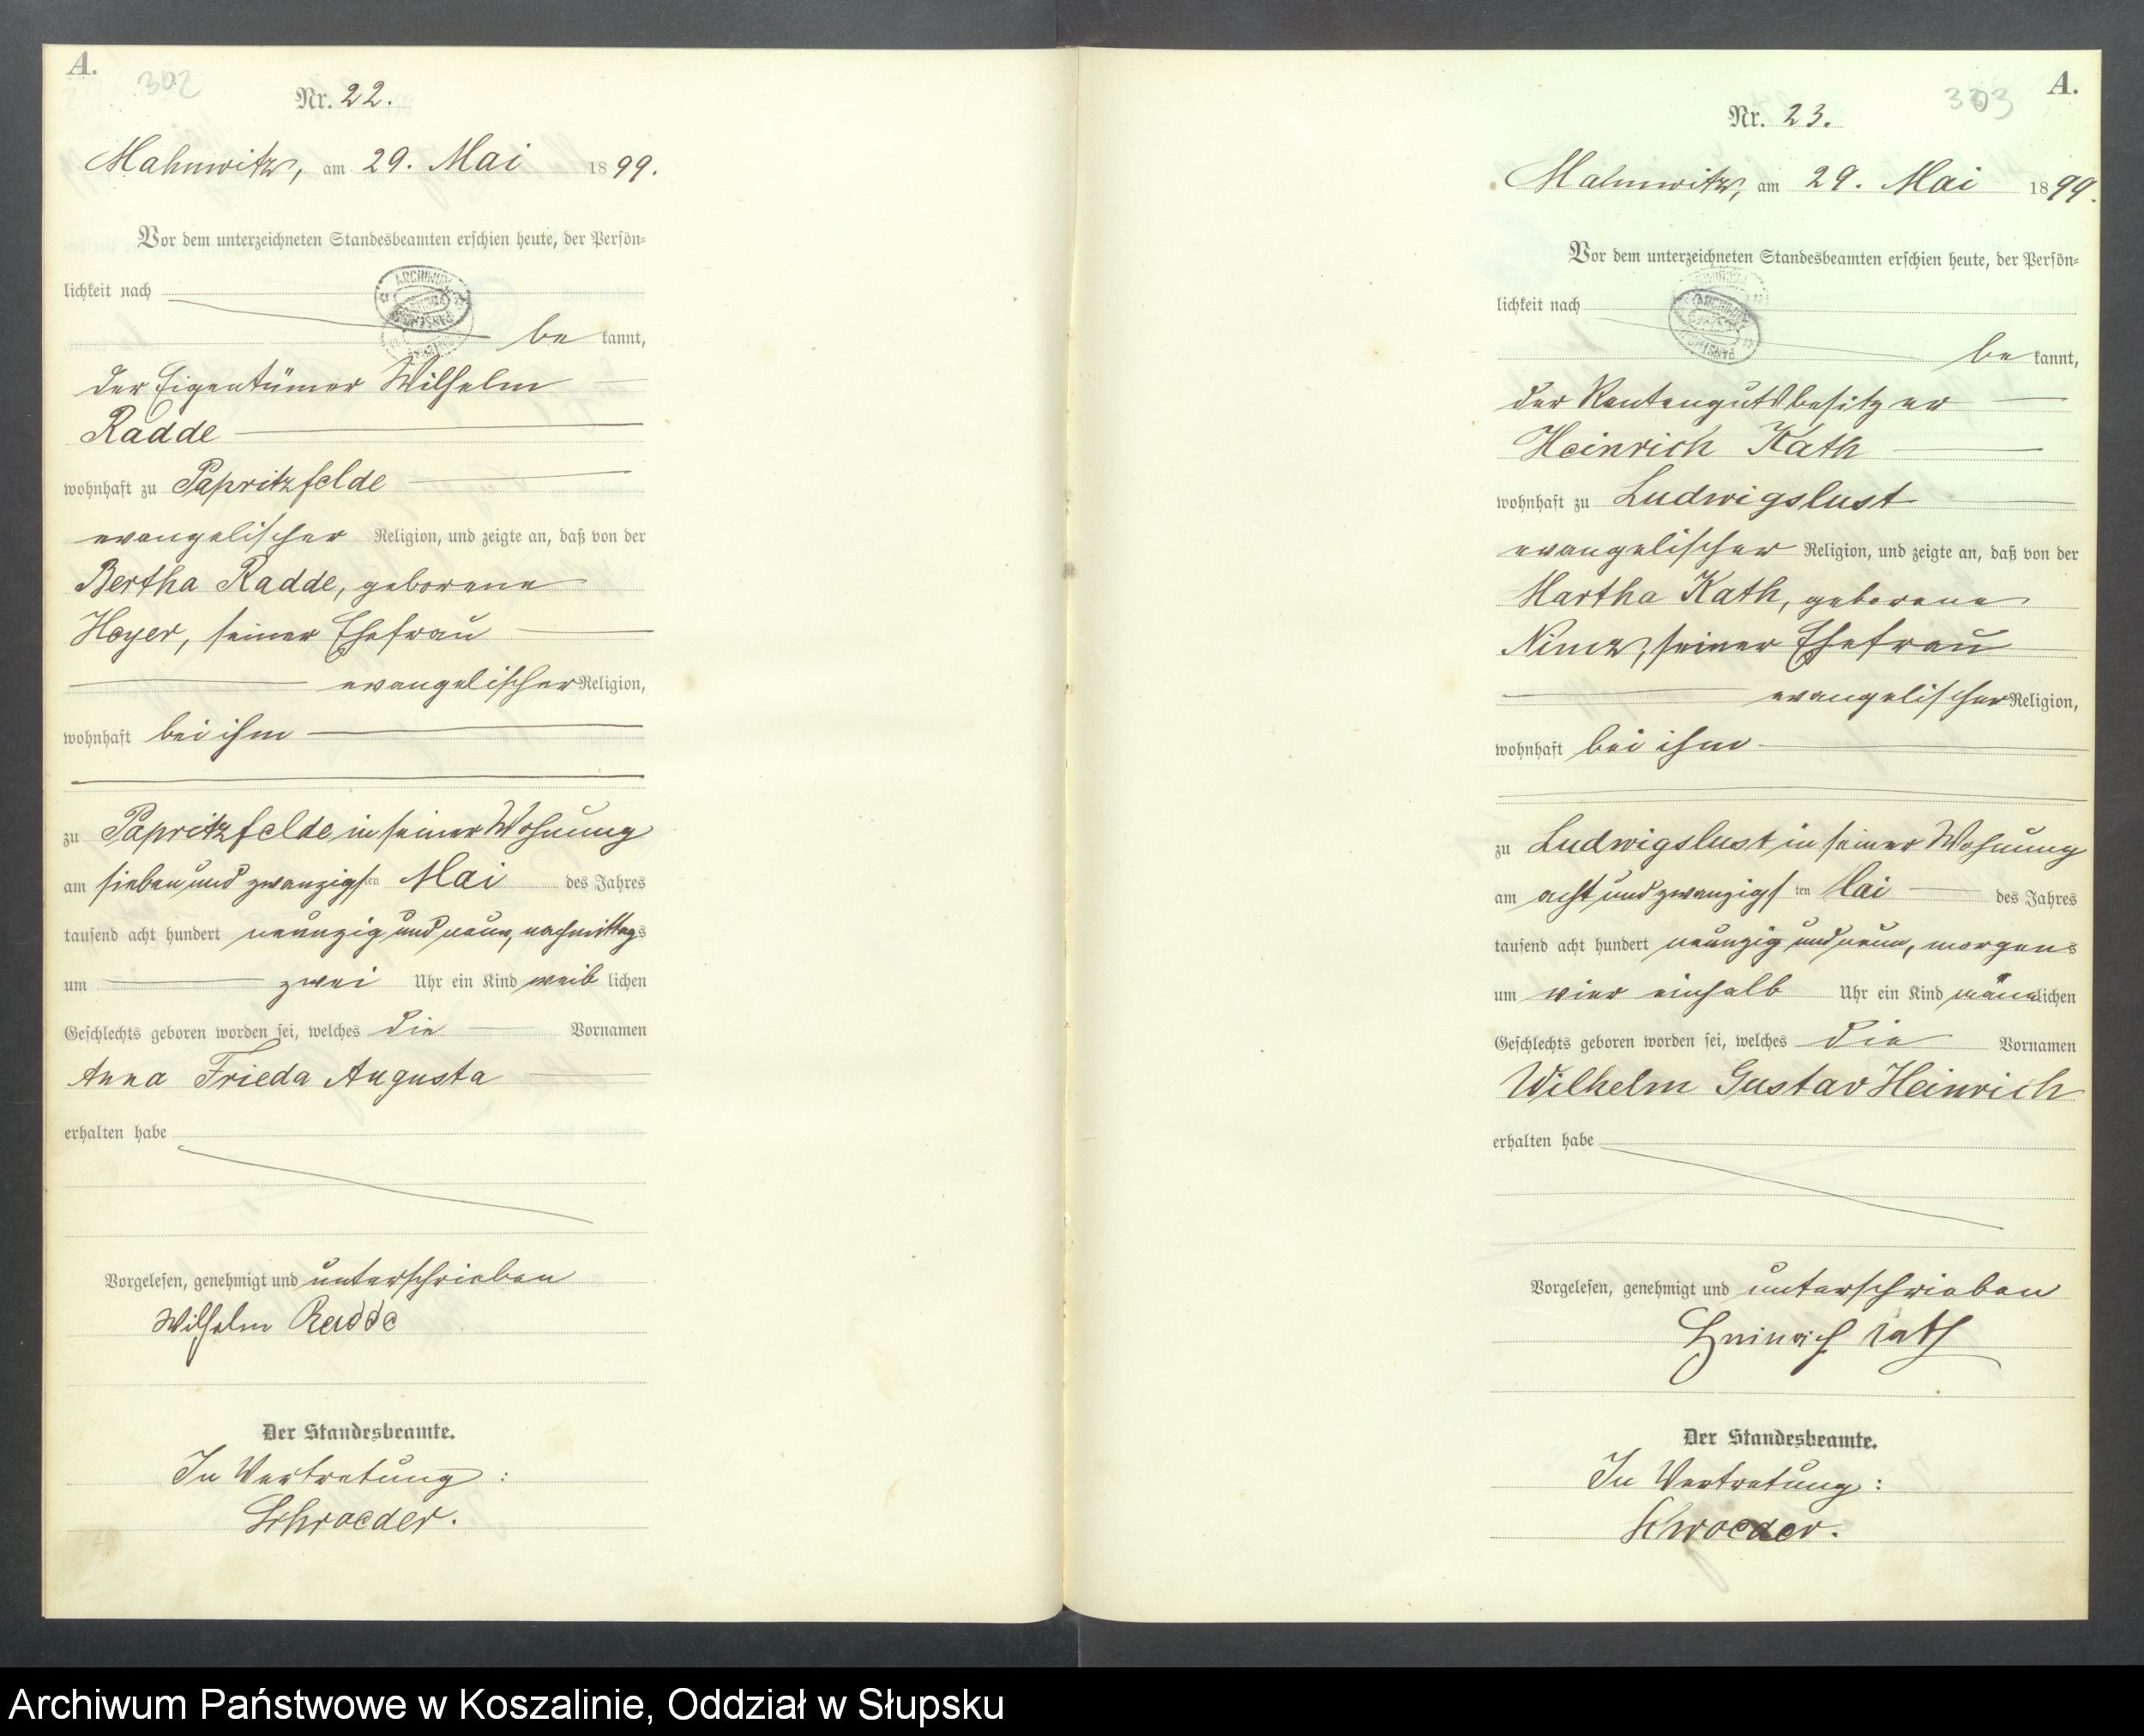 A.
302
Nr. 22.
Mahnwitz, am 29. Mai 1899.
Vor dem unterzeichneten Standesbeamten erschien heute, der Persön-
lichkeit nach
be kannt,
der Eigentümer Wilhelm
Radde
wohnhaft zu Papritzfelde
evangelischer Religion, und zeigte an, daß von der
Bertha Radde, geborene
Hoyer, seiner Ehefrau
evangelischer Religion,
wohnhaft bei ihm
zu Papritzfelde in seiner Wohnung
am sieben und zwanzigsten Mai des Jahres
tausend acht hundert neunzig und neun, nachmittags
um zwei Uhr ein Kind weiblichen
Geschlechts geboren worden sei, welches die Vornamen
Anna Frieda Augusta
erhalten habe
Vorgelesen, genehmigt und unterschrieben
Wilhelm Radde
Der Standesbeamte.
In Vertretung:
Schroeder.
A.
303
Nr. 23.
Mahnwitz, am 29. Mai 1899.
Vor dem unterzeichneten Standesbeamten erschien heute, der Persön-
lichkeit nach
be kannt,
der Rentengutsbesitzer
Heinrich Kath
wohnhaft zu Ludwigslust
evangelischer Religion, und zeigte an, daß von der
Martha Kath, geborene
Nimz, seiner Ehefrau
evangelischer Religion,
wohnhaft bei ihm
zu Ludwigslust in seiner Wohnung
am acht und zwanzigsten Mai des Jahres
tausend acht hundert neunzig und neun, morgens
um vier einhalb Uhr ein Kind männlichen
Geschlechts geboren worden sei, welches die Vornamen
Wilhelm Gustav Heinrich
erhalten habe
Vorgelesen, genehmigt und unterschrieben
Heinrich Kath
Der Standesbeamte.
In Vertretung:
Schroeder.
Archiwum Państwowe w Koszalinie, Oddział w Słupsku